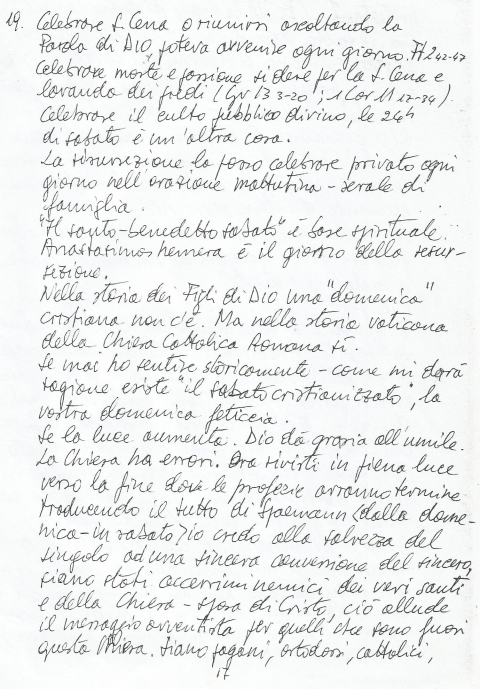 19. Celebrare S. Cena o riunirsi ascoltando la
Parola di Dio, poteva avvenire ogni giorno. At 2 42-47
Celebrare morte e passione si deve per la S. Cena e
lavanda dei piedi (Gv 13 3-20; 1 Cor 11 17-34).
Celebrare il culto pubblico divino, le 24h
di sabato è un'altra cosa.
La risurrezione la posso celebrare privato ogni
giorno nell'orazione mattutina - serale di
famiglia.
"Il santo-benedetto sabato" è base spirituale.
Anastasimos hemera è il giorno della resur-
rezione.
Nella storia dei Figli di Dio una "domenica"
cristiana non c'è. Ma nella storia vaticana
della Chiesa Cattolica Romana sì.
Se mai ho sentire storicamente - come mi darà
ragione esiste "il sabato cristianizzato", la
vostra domenica feticcia.
Se la luce aumenta. Dio dà grazia all'umile.
La Chiesa ha errori. Ora rivisti in piena luce
verso la fine dove le profezie avranno termine
traducendo il tutto di Spaemann (dalla dome-
nica - in sabato) io credo alla salvezza del
singolo ad una sincera conversione del sincero,
siano stati accerrimi nemici dei veri santi
e della Chiesa - sposa di Cristo, ciò allude
il messaggio avventista per quelli che sono fuori
questa Chiesa. Siano pagani, ortodossi, cattolici,
17